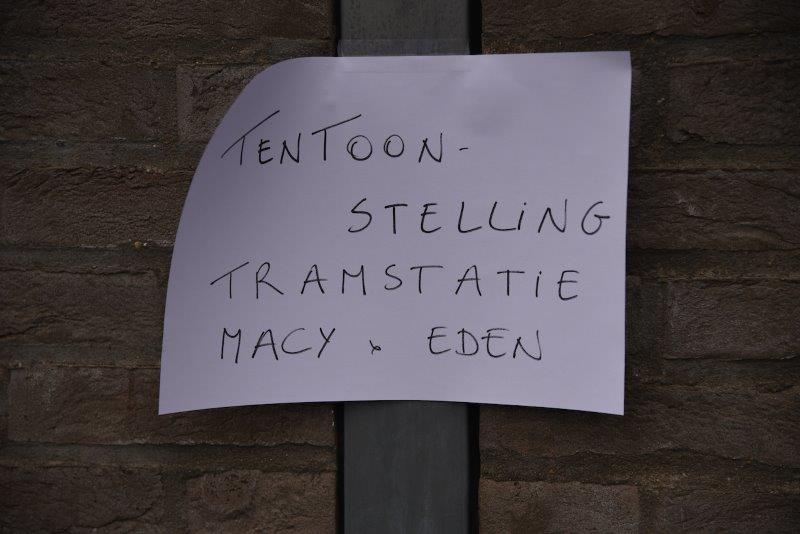 TENTOON-
STELLING
TRAMSTATIE
MACY & EDEN